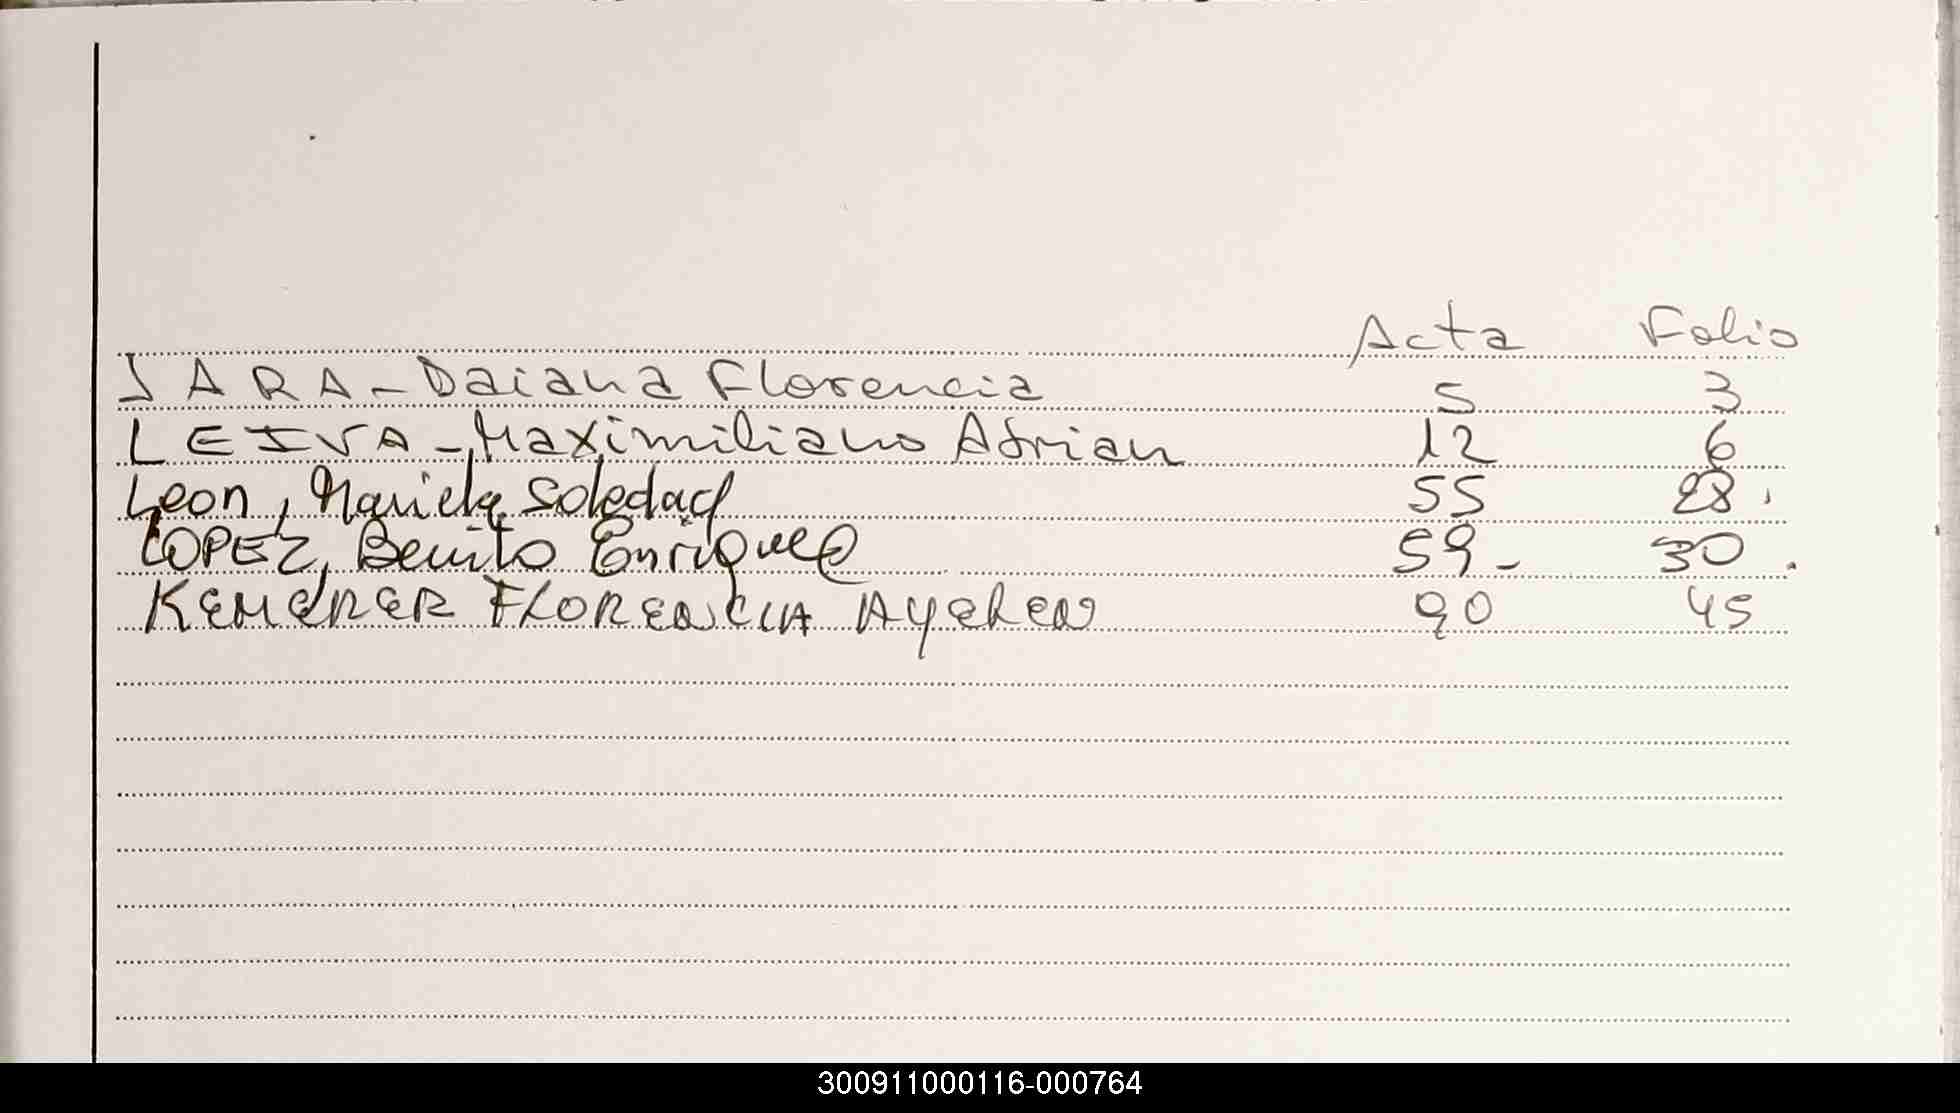 Acta Folio
JARA - Daiana Florencia 5 3
LEIVA - Maximiliano Adrian 12 6
Leon, Mariela Soledad 55 28.
LOPEZ, Benito Enrique 59- 30.
KEMERER FLORENCIA Ayelen 90 45
300911000116-000764